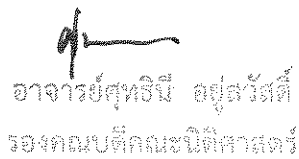 อาจารย์ศุทธินี อยู่สวัสดิ์
รองคณบดีคณะนิติศาสตร์